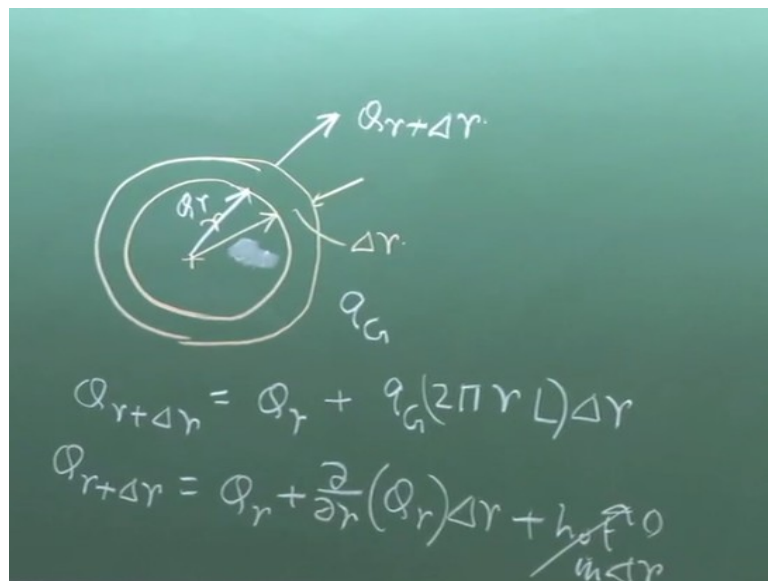 Q_{r+Δr}
Q_r
r
Δr
q_G
Q_{r+Δr} = Q_r + q_G(2πrL)Δr
Q_{r+Δr} = Q_r + ∂/∂r(Q_r)Δr + h.o.t → 0
in Δr